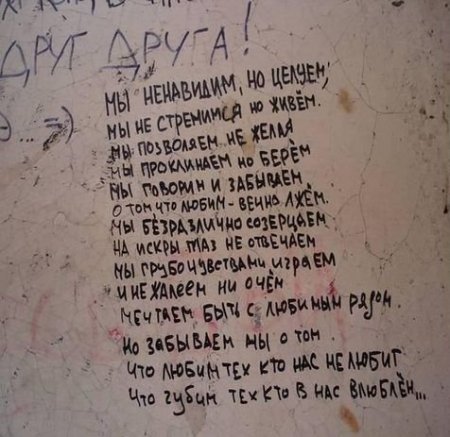 ДРУГ ДРУГА!
... =)
МЫ НЕНАВИДИМ, НО ЦЕЛУЕМ,
МЫ НЕ СТРЕМИМСЯ НО ЖИВЁМ.
МЫ ПОЗВОЛЯЕМ НЕ ЖЕЛАЯ
МЫ ПРОКЛИНАЕМ НО БЕРЁМ
МЫ ГОВОРИМ И ЗАБЫВАЕМ
О ТОМ ЧТО ЛЮБИМ - ВЕЧНО ЛЖЁМ.
МЫ БЕЗРАЗЛИЧНО СОЗЕРЦАЕМ
НА ИСКРЫ ГЛАЗ НЕ ОТВЕЧАЕМ
МЫ ГРУБО ЧУВСТВАМИ ИГРАЕМ
И НЕ ЖАЛЕЕМ НИ О ЧЁМ
МЕЧТАЕМ БЫТЬ С ЛЮБИМЫМ РЯДОМ.
НО ЗАБЫВАЕМ МЫ О ТОМ
ЧТО ЛЮБИМ ТЕХ КТО НАС НЕ ЛЮБИТ
ЧТО ГУБИМ ТЕХ КТО В НАС ВЛЮБЛЁН...